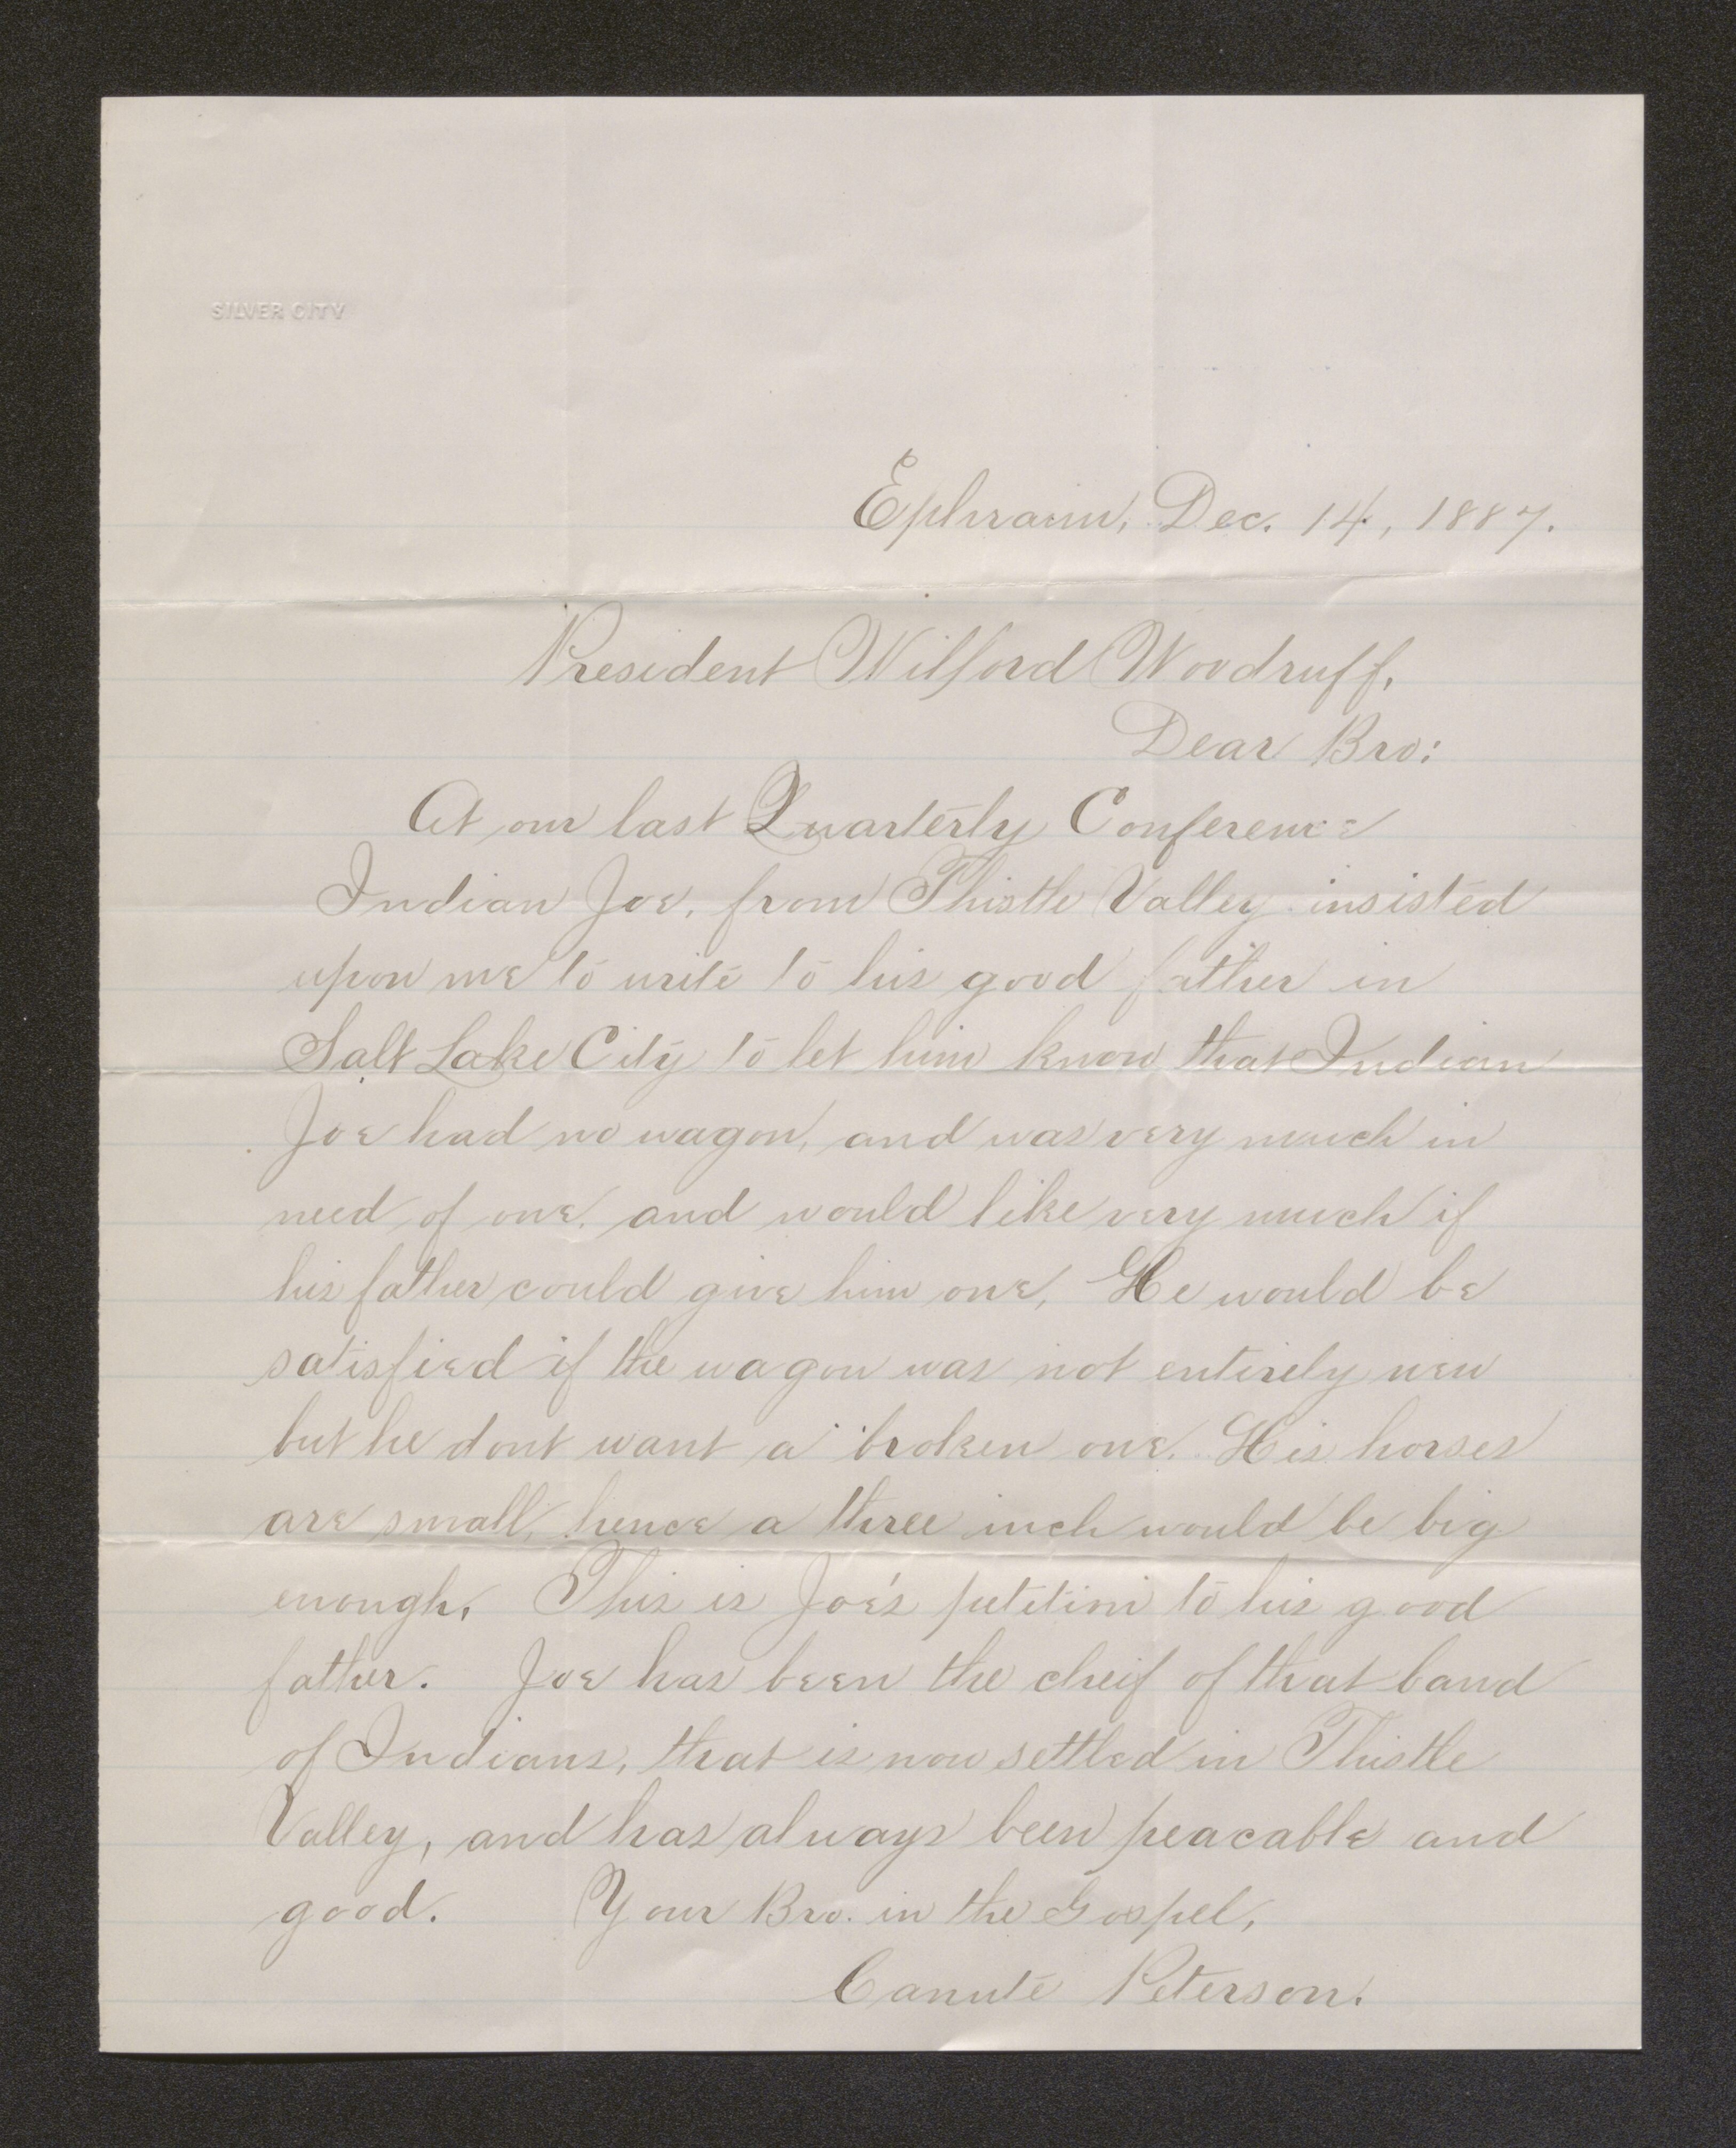 SILVER CITY
Ephraim, Dec. 14, 1887.
President Wilford Woodruff,
Dear Bro:
At our last Quarterly Conference
Indian Joe, from Thistle Valley insisted
upon me to write to his good father in
Salt Lake City to let him know that Indian
Joe had no wagon, and was very much in
need of one, and would like very much if
his father could give him one, He would be
satisfied if the wagon was not entirely new
but he dont want a broken one. His horses
are small, hence a three inch would be big
enough. This is Joe's petition to his good
father. Joe has been the cheif of that band
of Indians, that is now settled in Thistle
Valley, and has always been peacable and
good. Your Bro. in the Gospel,
Canute Peterson.